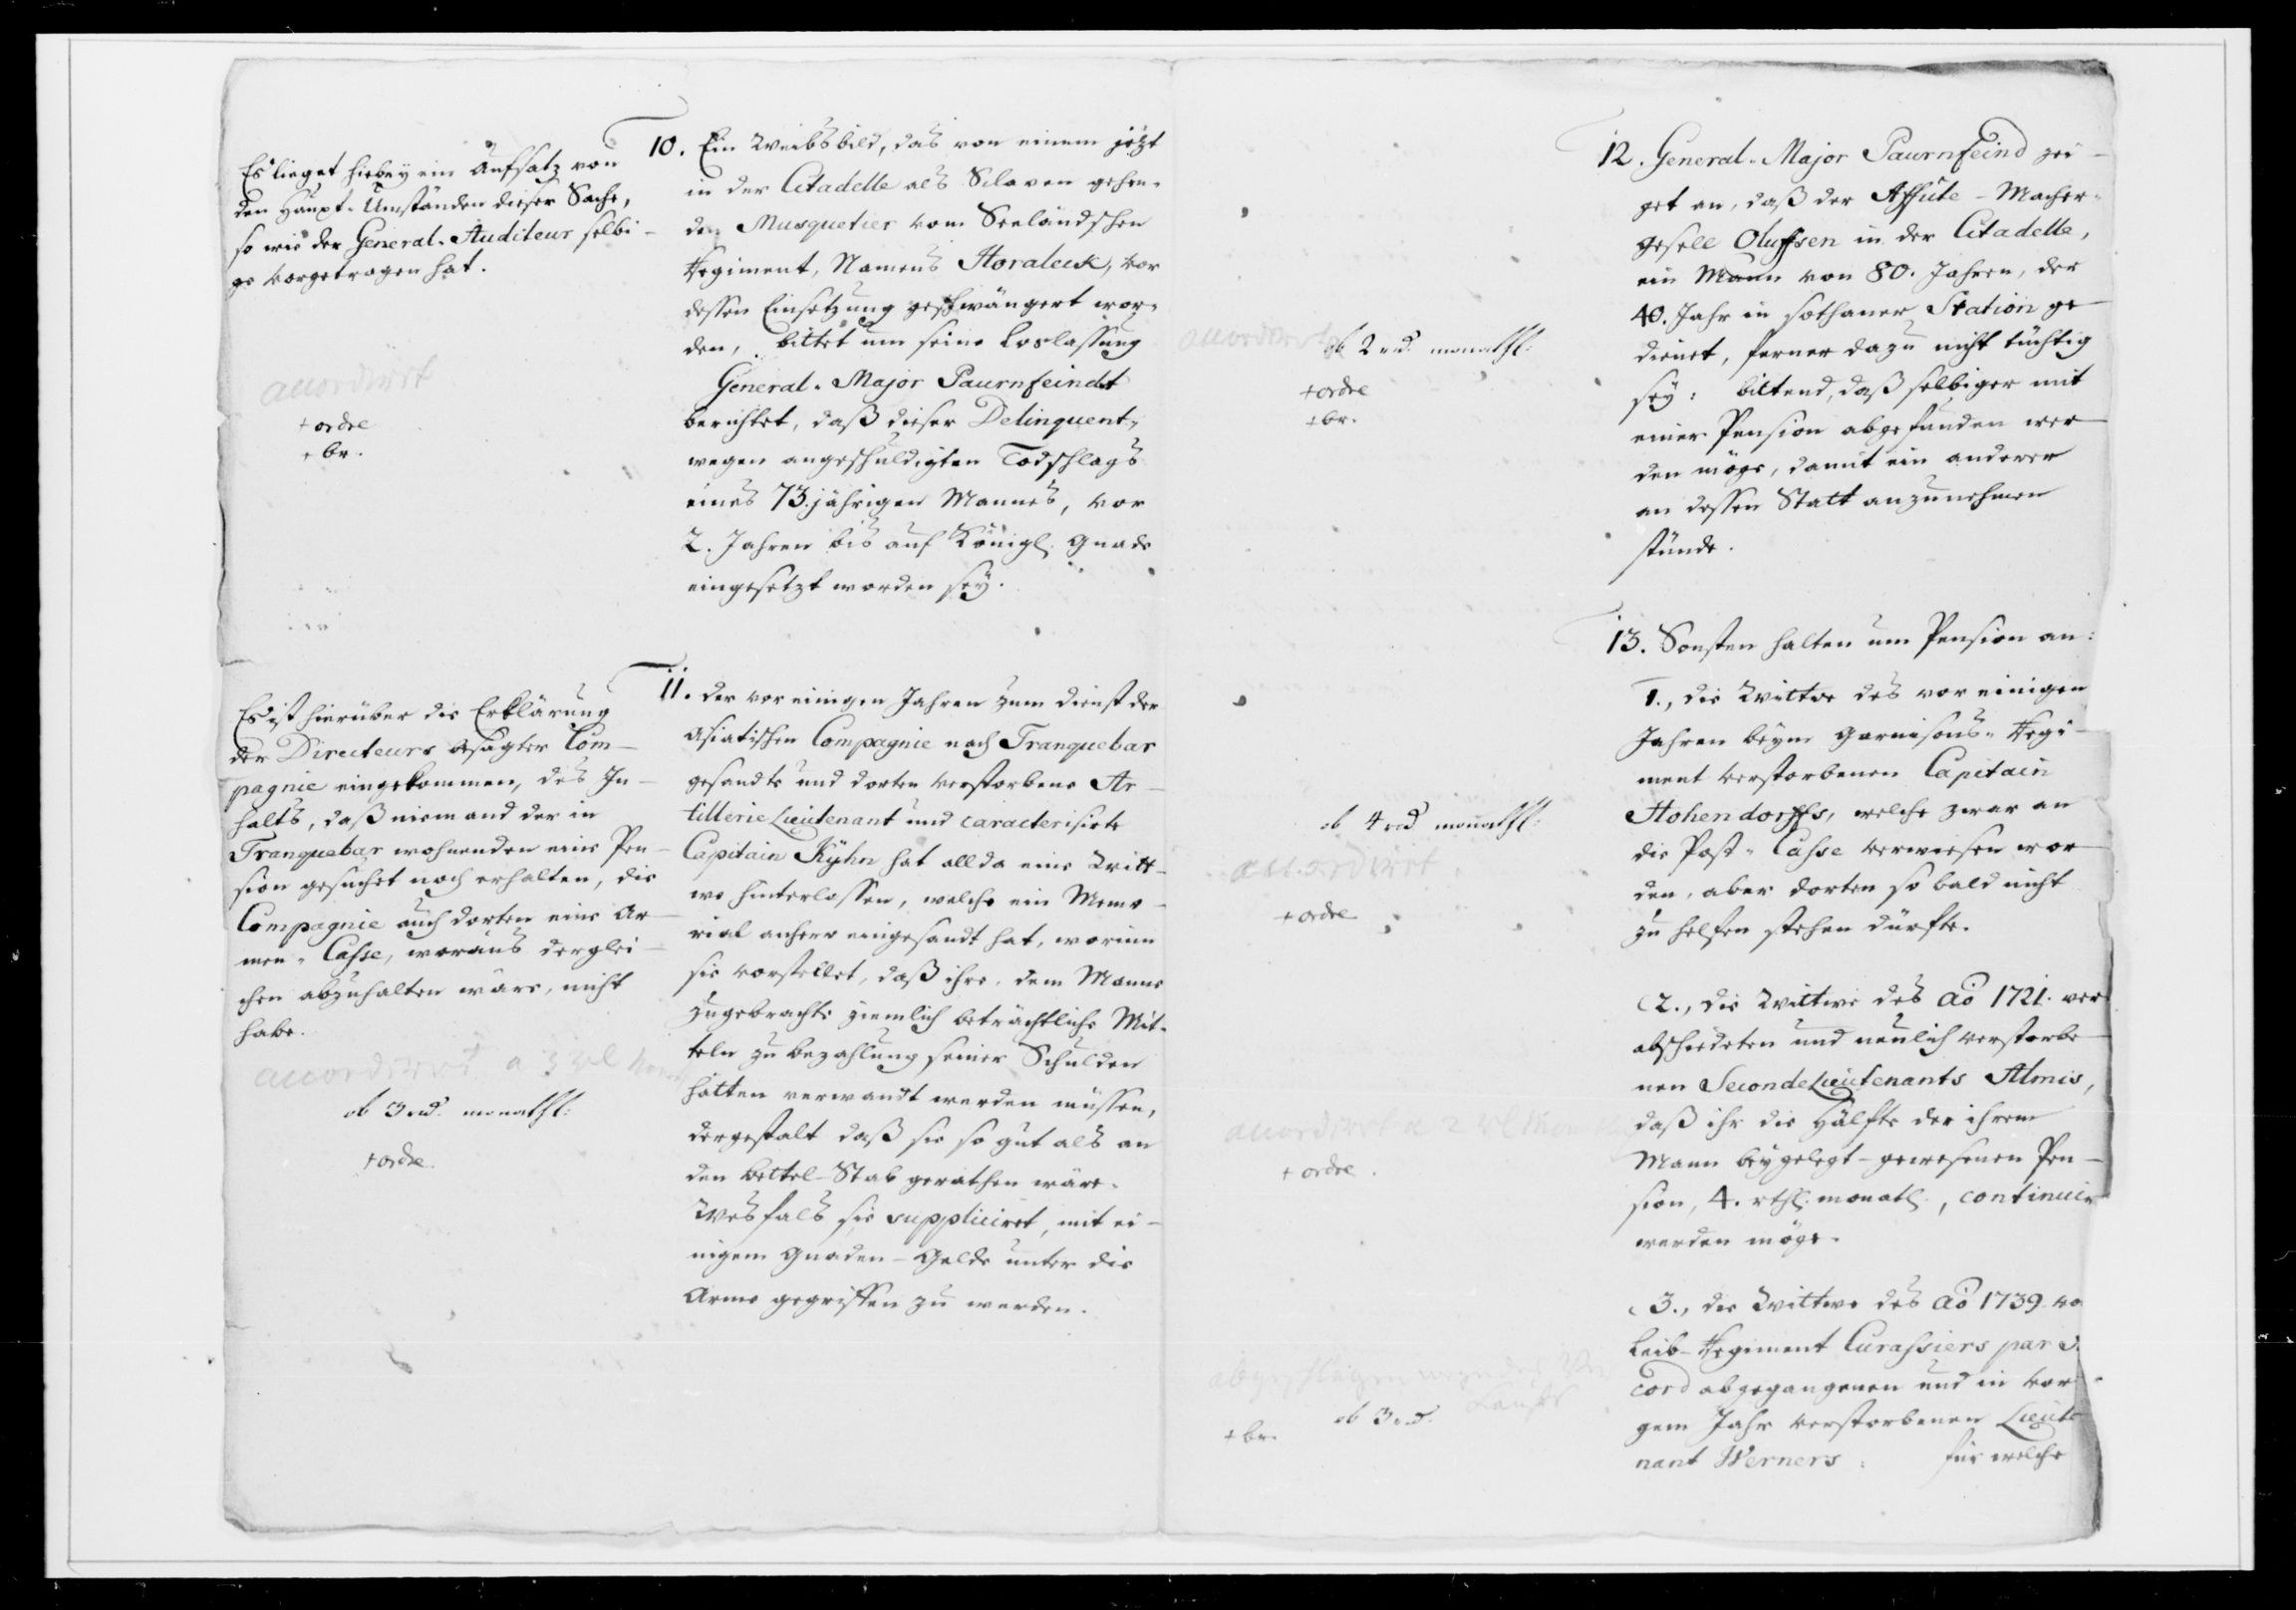 Es lieget hiebey ein Aufsatz von
den Haupt-Umständen dieser Sache,
so wie der General-Auditeur selbi-
ge vorgetragen hat.
accordirt
+ ordre
+ br.
10. Ein Weibsbild, das von einem jetzt
in der Citadelle als Sclaven gehen-
den Musquetier vom Seeländschen
Regiment, Namens Horaleck, vor
dessen Einsetzung geschwängert wor-
den, bittet um seine Loslassung
General-Major Paurnfeindt
berichtet, daß dieser Delinquent,
wegen angeschuldigten Todschlags
eines 73.jährigen Mannes, vor
2. Jahren bis auf Königl. Gnade
eingesetzt worden sey.
Es ist hierüber die Erklärung
der Directeurs besagter Com-
pagnie eingekommen, des In-
halts, daß niemand der in
Tranquebar wohnenden eine Pen-
sion gesuchet noch erhalten, die
Compagnie auch dorten eine Ar-
men-Casse, woraus derglei-
chen abzuhalten wäre, nicht
habe.
accordirt a 3 rd
ob 3 rd. monathl:
+ ordre.
11. der vor einigen Jahren zum Dienst der
Asiatischen Compagnie nach Tranquebar
gesandte und dorten verstorbene Ar-
tillerie Lieutenant und caracterisirte
Capitain Kyhn hat allda eine Witt-
we hinterlassen, welche ein Memo-
rial anhero eingesandt hat, worinn
sie vorstellet, daß ihre, dem Manne
zugebrachte ziemlich beträchtliche Mit-
teln zu bezahlung seiner Schulden
hätten verwandt werden müssen,
dergestalt daß sie so gut als an
den Bettel-Stab gerathen wäre.
Wesfals sie suppliciret, mit ei-
nigem Gnaden-Gelde unter die
Arme gegriffen zu werden.
accordirt
ob 2 rd. monathl:
+ ordre
+ br.
12. General-Major Paurnfeind zei-
get an, daß der Affute-Macher-
gesell Oluffsen in der Citadelle,
ein Mann von 80. Jahren, der
40. Jahr in sothaner Station ge-
dienet, ferner dazu nicht tüchtig
sey: bittend, daß selbiger mit
einer Pension abgefunden wer-
den möge, damit ein anderer
an dessen Statt anzunehmen
stünde.
13. Sonsten halten um Pension an:
1., die Wittwe des vor einigen
Jahren beym Garnisons-Regi-
ment verstorbenen Capitain
Hohendorffs, welche zwar an
die Post-Casse verwiesen wor-
den, aber dorten so bald nicht
zu helfen stehen dürfte.
ob 4 rd monathl:
accordirt
+ ordre
2., die Wittwe des Ao 1721. ver-
abschiedeten und neulich verstorbe-
nen Seconde Lieutenants Almis,
daß ihr die Hälfte der ihrem
Mann beygelegt-gewesenen Pen-
sion, 4. rthl. monatl., continuir
werden möge.
accordirt a 2 rd
+ ordre.
3., die Wittwe des Ao 1739. vo
Leib-Regiment Curassiers par
cord abgegangenen und in vor
gem Jahr verstorbenen Lieute
nant Werners: für welche
abgeschlagen wegen des
ob 3 rd.
+ br.